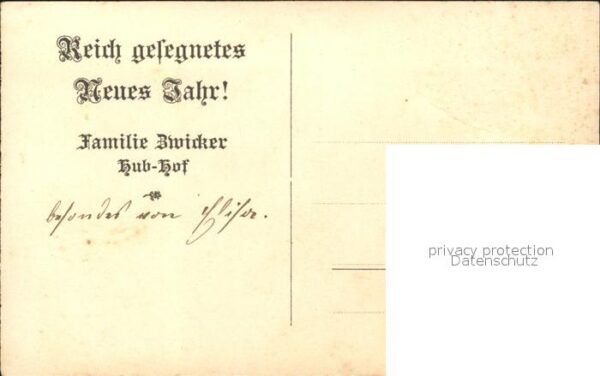 Reich gesegnetes
Neues Jahr!
Familie Zwicker
Hub-Hof
besondes von
privacy protection
Datenschutz